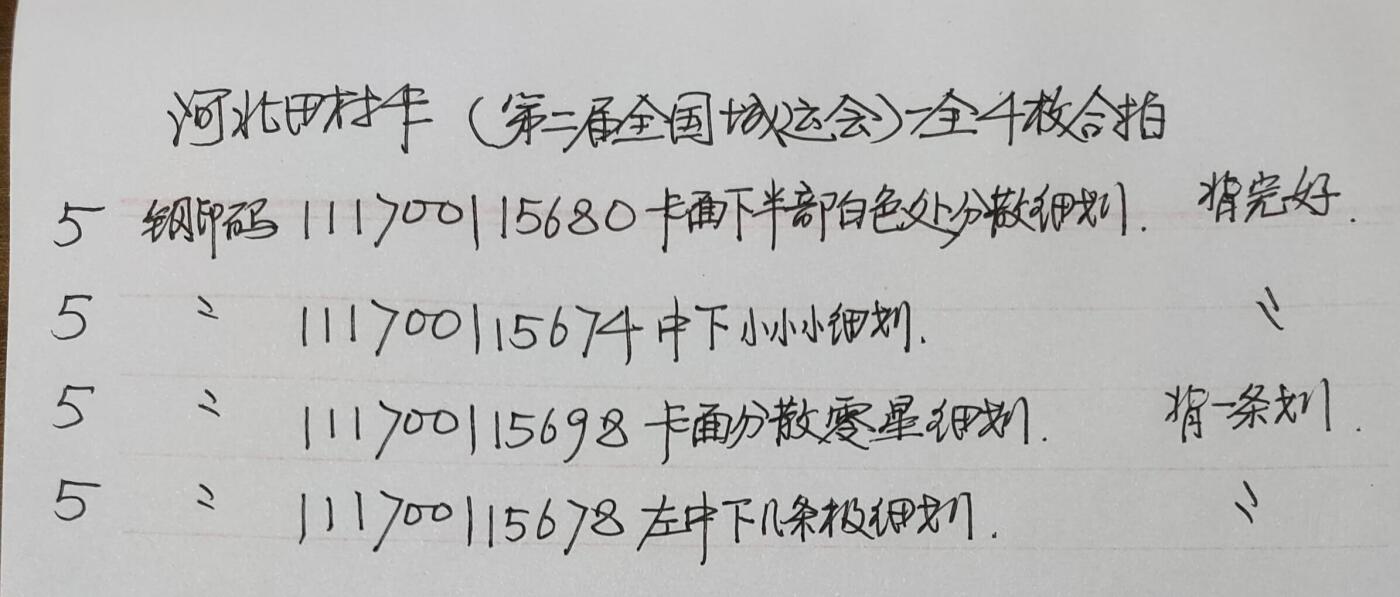 河北田村卡（第二届全国城运会）一全4枚合拍
5 钢印码 111700115680 卡面下半部白色处分散细划. 背完好.
5 〃 111700115674 中下小小小细划. 〃
5 〃 111700115698 卡面分散零星细划. 背一条划.
5 〃 111700115678 左中下几条极细划. 〃